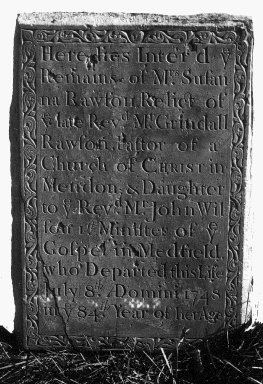 Here lies Inter'd yᵉ
Remains of Mʳˢ Susan
na Rawson, Relict of
yᵉ late Revᵈ Mʳ Grindall
Rawson, Pastor of a
Church of CHRIST in
Mendon, & Daughter
to yᵉ Revᵈ Mʳ John Wil
son 1ˢᵗ Minister of yᵉ
Gospel in Medfield,
who Departed this Life
July 8ᵗʰ Domini 1748
in yᵉ 84ᵗʰ Year of her Age